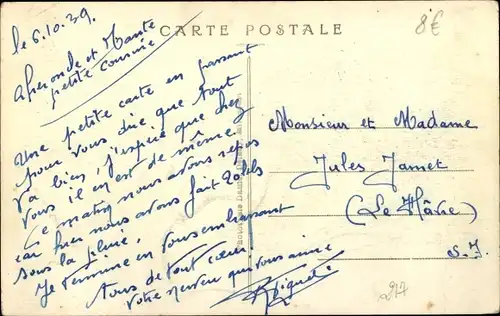 CARTE POSTALE
8€
le 6.10.39.
petite cousine
Une petite carte en passant
pour vous dire que tout
va bien, j'espère que chez
vous il en est de même.
Ce matin nous avons repos
car hier nous avons fait 20 kls
sous la pluie.
Je termine en vous embrassant
tous de tout cœur!
Votre neveu qui vous aime
Monsieur et Madame
Jules Jamet
(Le Hâvre)
S.I.